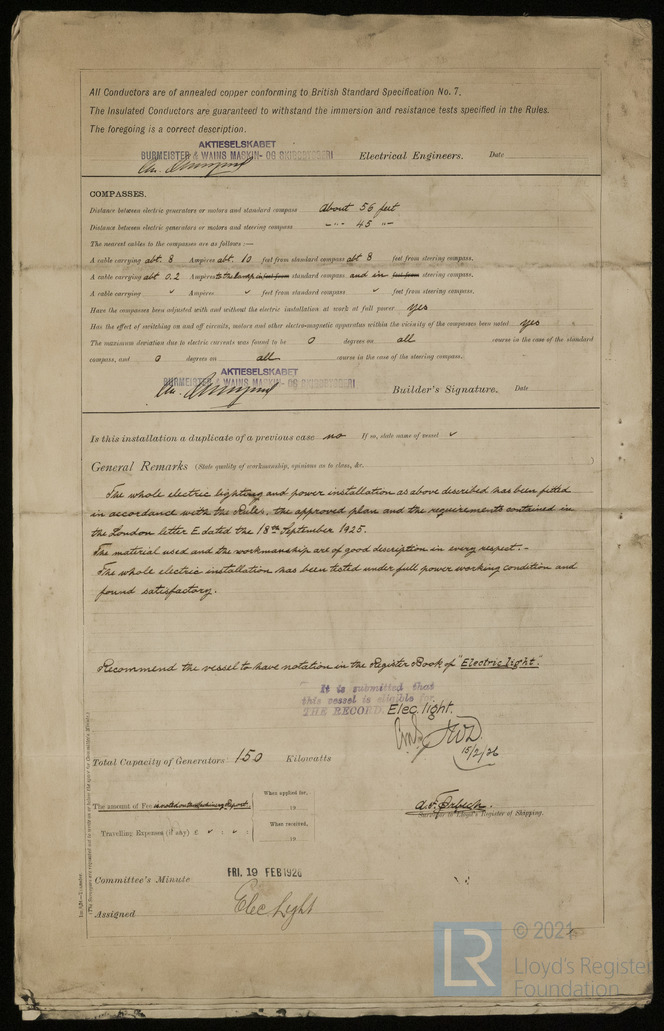 All Conductors are of annealed copper conforming to British Standard Specification No. 7.
The Insulated Conductors are guaranteed to withstand the immersion and resistance tests specified in the Rules.
The foregoing is a correct description.
AKTIESELSKABET
BURMEISTER & WAINS MASKIN- OG SKIBSBYGGERI Electrical Engineers. Date
COMPASSES.
Distance between electric generators or motors and standard compass about 56 feet
Distance between electric generators or motors and steering compass -"- 45 -"-
The nearest cables to the compasses are as follows :—
A cable carrying abt. 8 Ampères abt. 10 feet from standard compass abt 8 feet from steering compass.
A cable carrying abt 0.2 Ampères to the lamp in feet from standard compass and in feet from steering compass.
A cable carrying ✓ Ampères ✓ feet from standard compass ✓ feet from steering compass.
Have the compasses been adjusted with and without the electric installation at work at full power yes
Has the effect of switching on and off circuits, motors and other electro-magnetic apparatus within the vicinity of the compasses been noted yes
The maximum deviation due to electric currents was found to be 0 degrees on all course in the case of the standard
compass, and 0 degrees on all course in the case of the steering compass.
AKTIESELSKABET
BURMEISTER & WAINS MASKIN- OG SKIBSBYGGERI Builder's Signature. Date
Is this installation a duplicate of a previous case no If so, state name of vessel ✓
General Remarks (State quality of workmanship, opinions as to class, &c. )
The whole electric lighting and power installation as above described has been fitted
in accordance with the Rules, the approved plan and the requirements contained in
the London letter E dated the 18th September 1925.
The material used and the workmanship are of good description in every respect.-
The whole electric installation has been tested under full power working condition and
found satisfactory.
Recommend the vessel to have notation in the Register Book of "Electric light."
It is submitted that
this vessel is eligible for
THE RECORD. Elec. light.
JWD
15/2/26
Total Capacity of Generators 150 Kilowatts
The amount of Fee is noted on the Machinery Report.
When applied for,
19
Travelling Expenses (if any) £ ✓ : ✓ :
When received,
19
Surveyor to Lloyd's Register of Shipping.
Committee's Minute FRI. 19 FEB 1926
Assigned Elec Light
LR © 2021
Lloyd's Register
Foundation